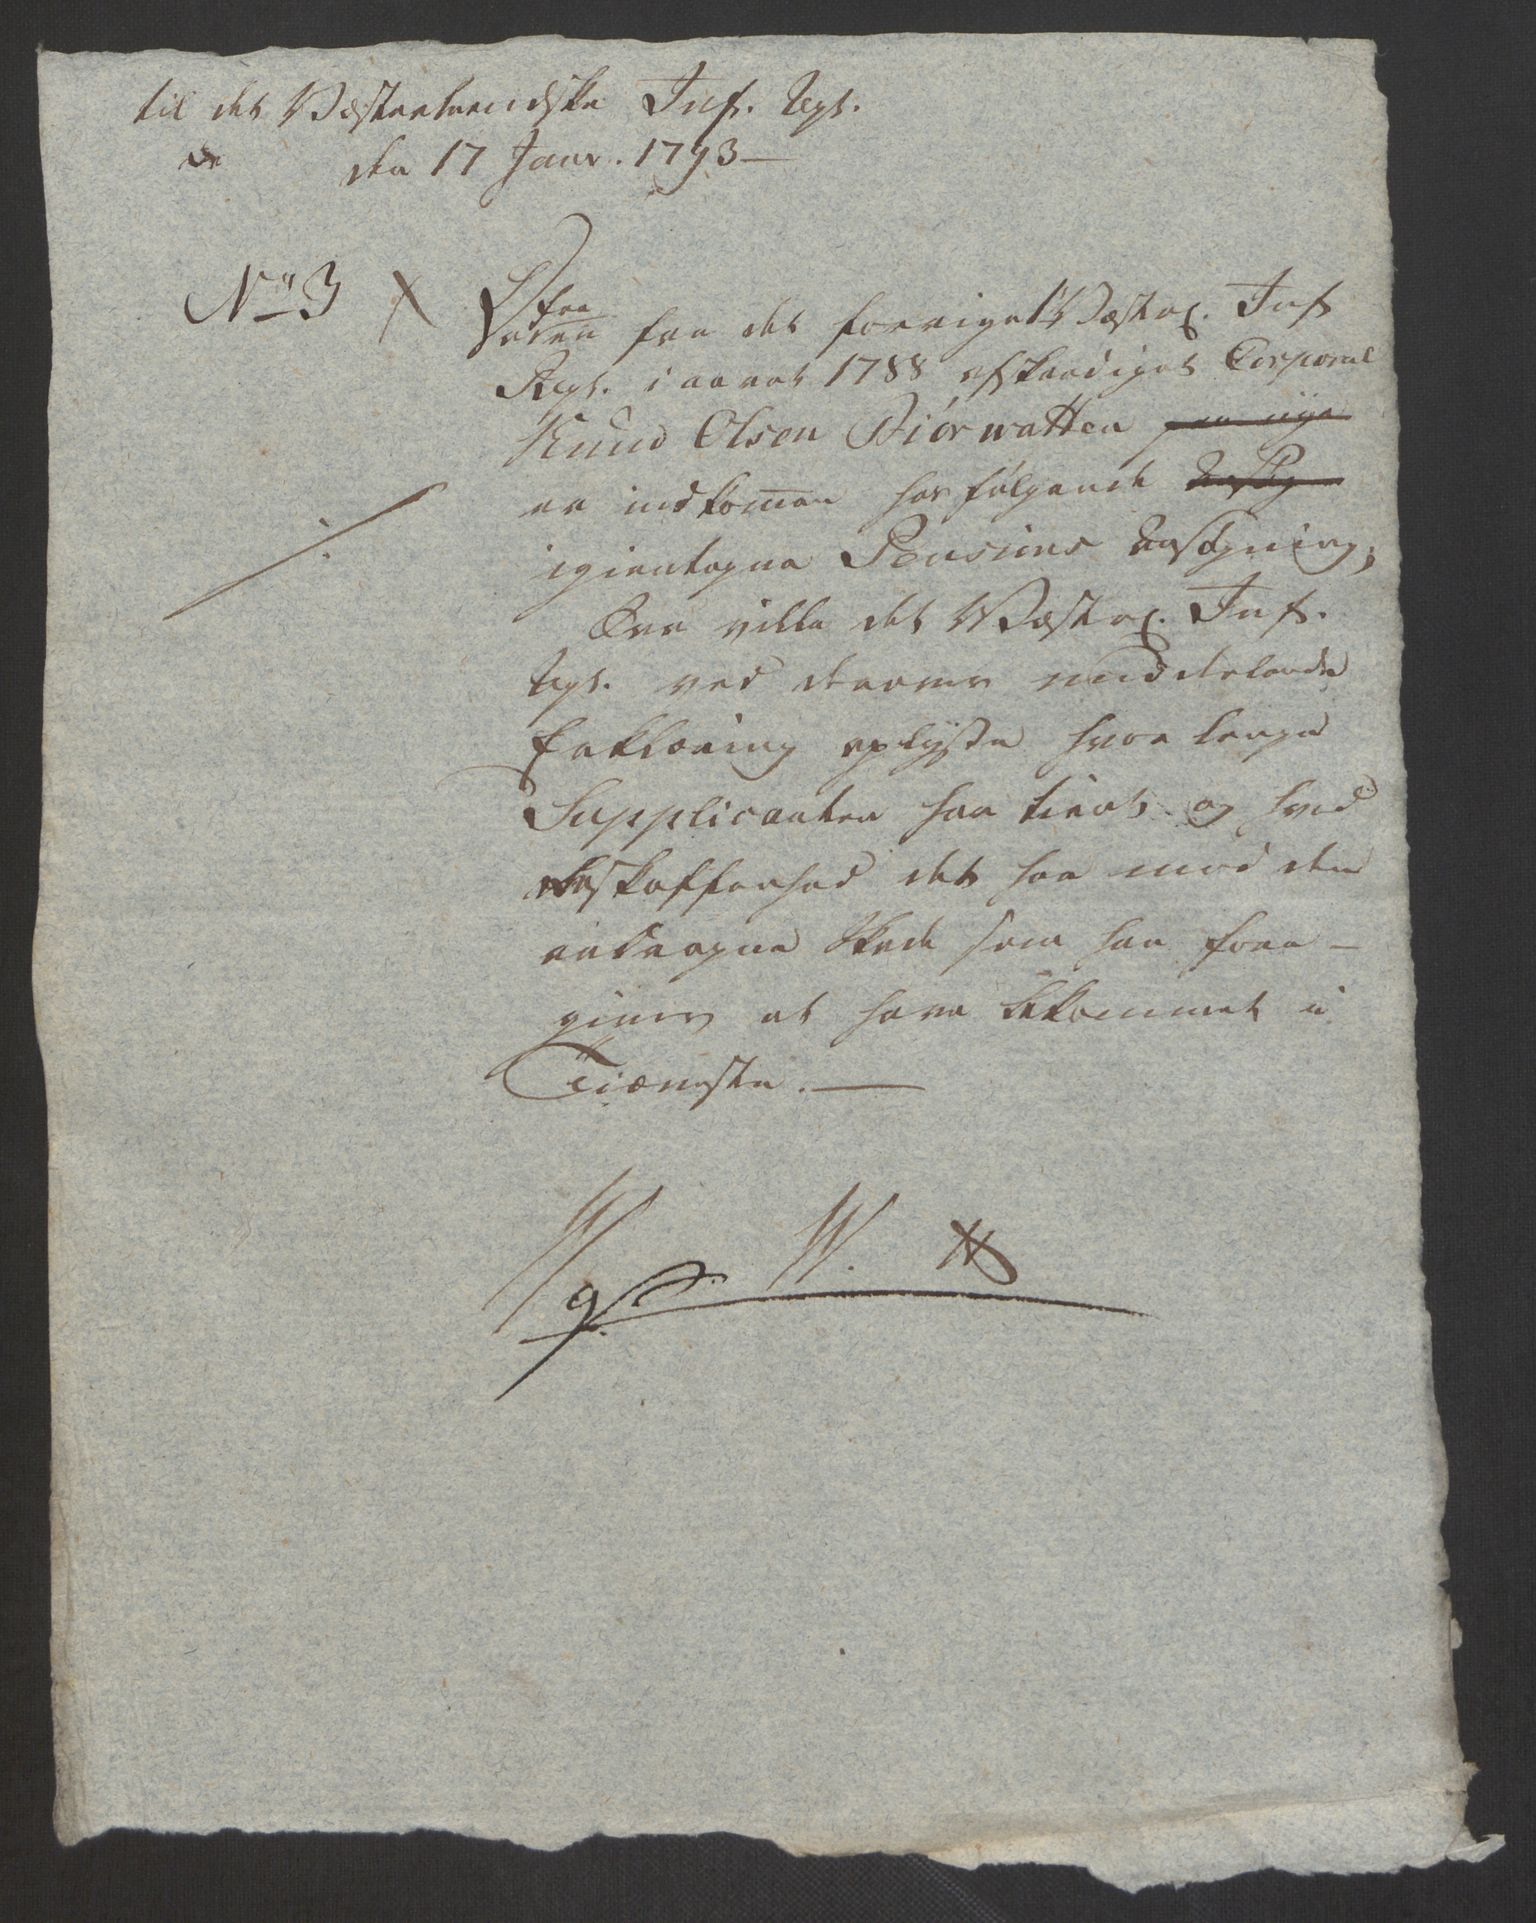 til det Vesterlendske Inf. Regt.
den 17 Janv. 1793 —
No 3 X
fra det forrige 1ste Vesterl. Inf
Regt. i aaret 1788 afskeediget Corporal
Knud Olsen Biörwatten
er indkommen hosfølgende
igientagne Pensions Ansøgning,
ville det Vesterl. Inf.
Regt. ved derom meddelende
Erklæring oplyse hvor lenge
Supplicanten har tient og hvad
beskaffenhed det har med den
erdragne Skade som han fore-
giver at have bekommet i
Tienesten. —